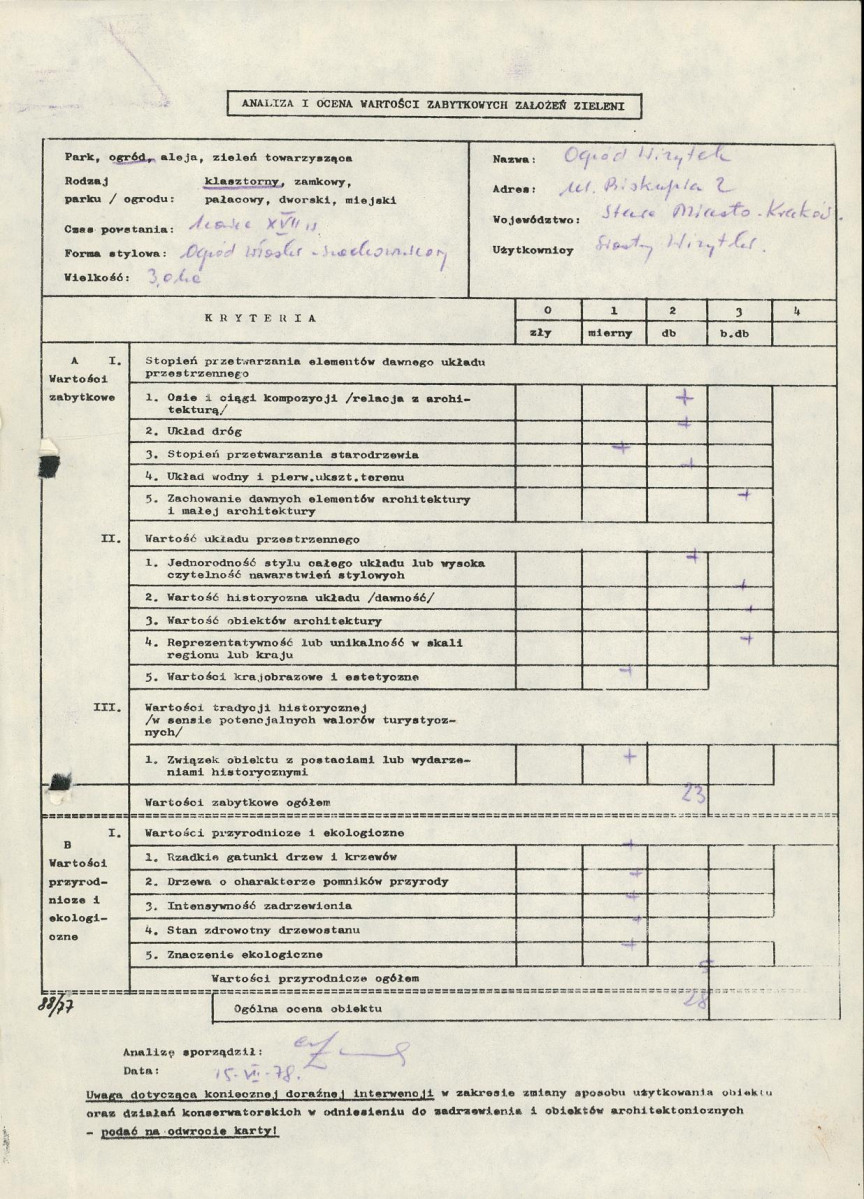 ANALIZA I OCENA WARTOŚCI ZABYTKOWYCH ZAŁOŻEŃ ZIELENI
Park, ogród, aleja, zieleń towarzysząca
Rodzaj klasztorny, zamkowy,
parku / ogrodu: pałacowy, dworski, miejski
Czas powstania: XVII
Forma stylowa: Ogród włoski
Wielkość: 3,0 ha
Nazwa: Ogród Wizytek
Adres: ul. Biskupia 2
Województwo: Stare Miasto - Kraków.
Użytkownicy Siostry Wizytki.
KRYTERIA
0 1 2 3 4
zły mierny db b.db
A I. Stopień przetwarzania elementów dawnego układu
przestrzennego
Wartości
zabytkowe
1. Osie i ciągi kompozycji /relacja z archi-
tekturą/ +
2. Układ dróg +
3. Stopień przetwarzania starodrzewia +
4. Układ wodny i pierw.ukszt.terenu +
5. Zachowanie dawnych elementów architektury
i małej architektury +
II. Wartość układu przestrzennego
1. Jednorodność stylu całego układu lub wysoka
czytelność nawarstwień stylowych +
2. Wartość historyczna układu /dawność/ +
3. Wartość obiektów architektury +
4. Reprezentatywność lub unikalność w skali
regionu lub kraju +
5. Wartości krajobrazowe i estetyczne +
III. Wartości tradycji historycznej
/w sensie potencjalnych walorów turystycz-
nych/
1. Związek obiektu z postaciami lub wydarze-
niami historycznymi +
Wartości zabytkowe ogółem 23
B I. Wartości przyrodnicze i ekologiczne
Wartości
przyrod-
nicze i
ekologi-
czne
1. Rzadkie gatunki drzew i krzewów +
2. Drzewa o charakterze pomników przyrody +
3. Intensywność zadrzewienia +
4. Stan zdrowotny drzewostanu +
5. Znaczenie ekologiczne +
Wartości przyrodnicze ogółem 5
88/77
Ogólna ocena obiektu 28
Analizę sporządził:
Data: 15.VII.78.
Uwaga dotycząca koniecznej doraźnej interwencji w zakresie zmiany sposobu użytkowania obiektu
oraz działań konserwatorskich w odniesieniu do zadrzewienia i obiektów architektonicznych
- podać na odwrocie karty!